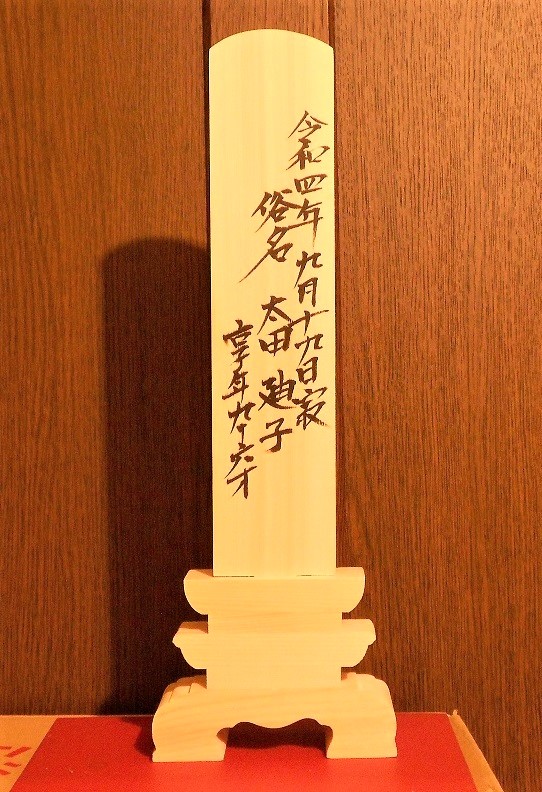 令和四年九月十九日寂
俗名 太田 廸子
享年九十六才